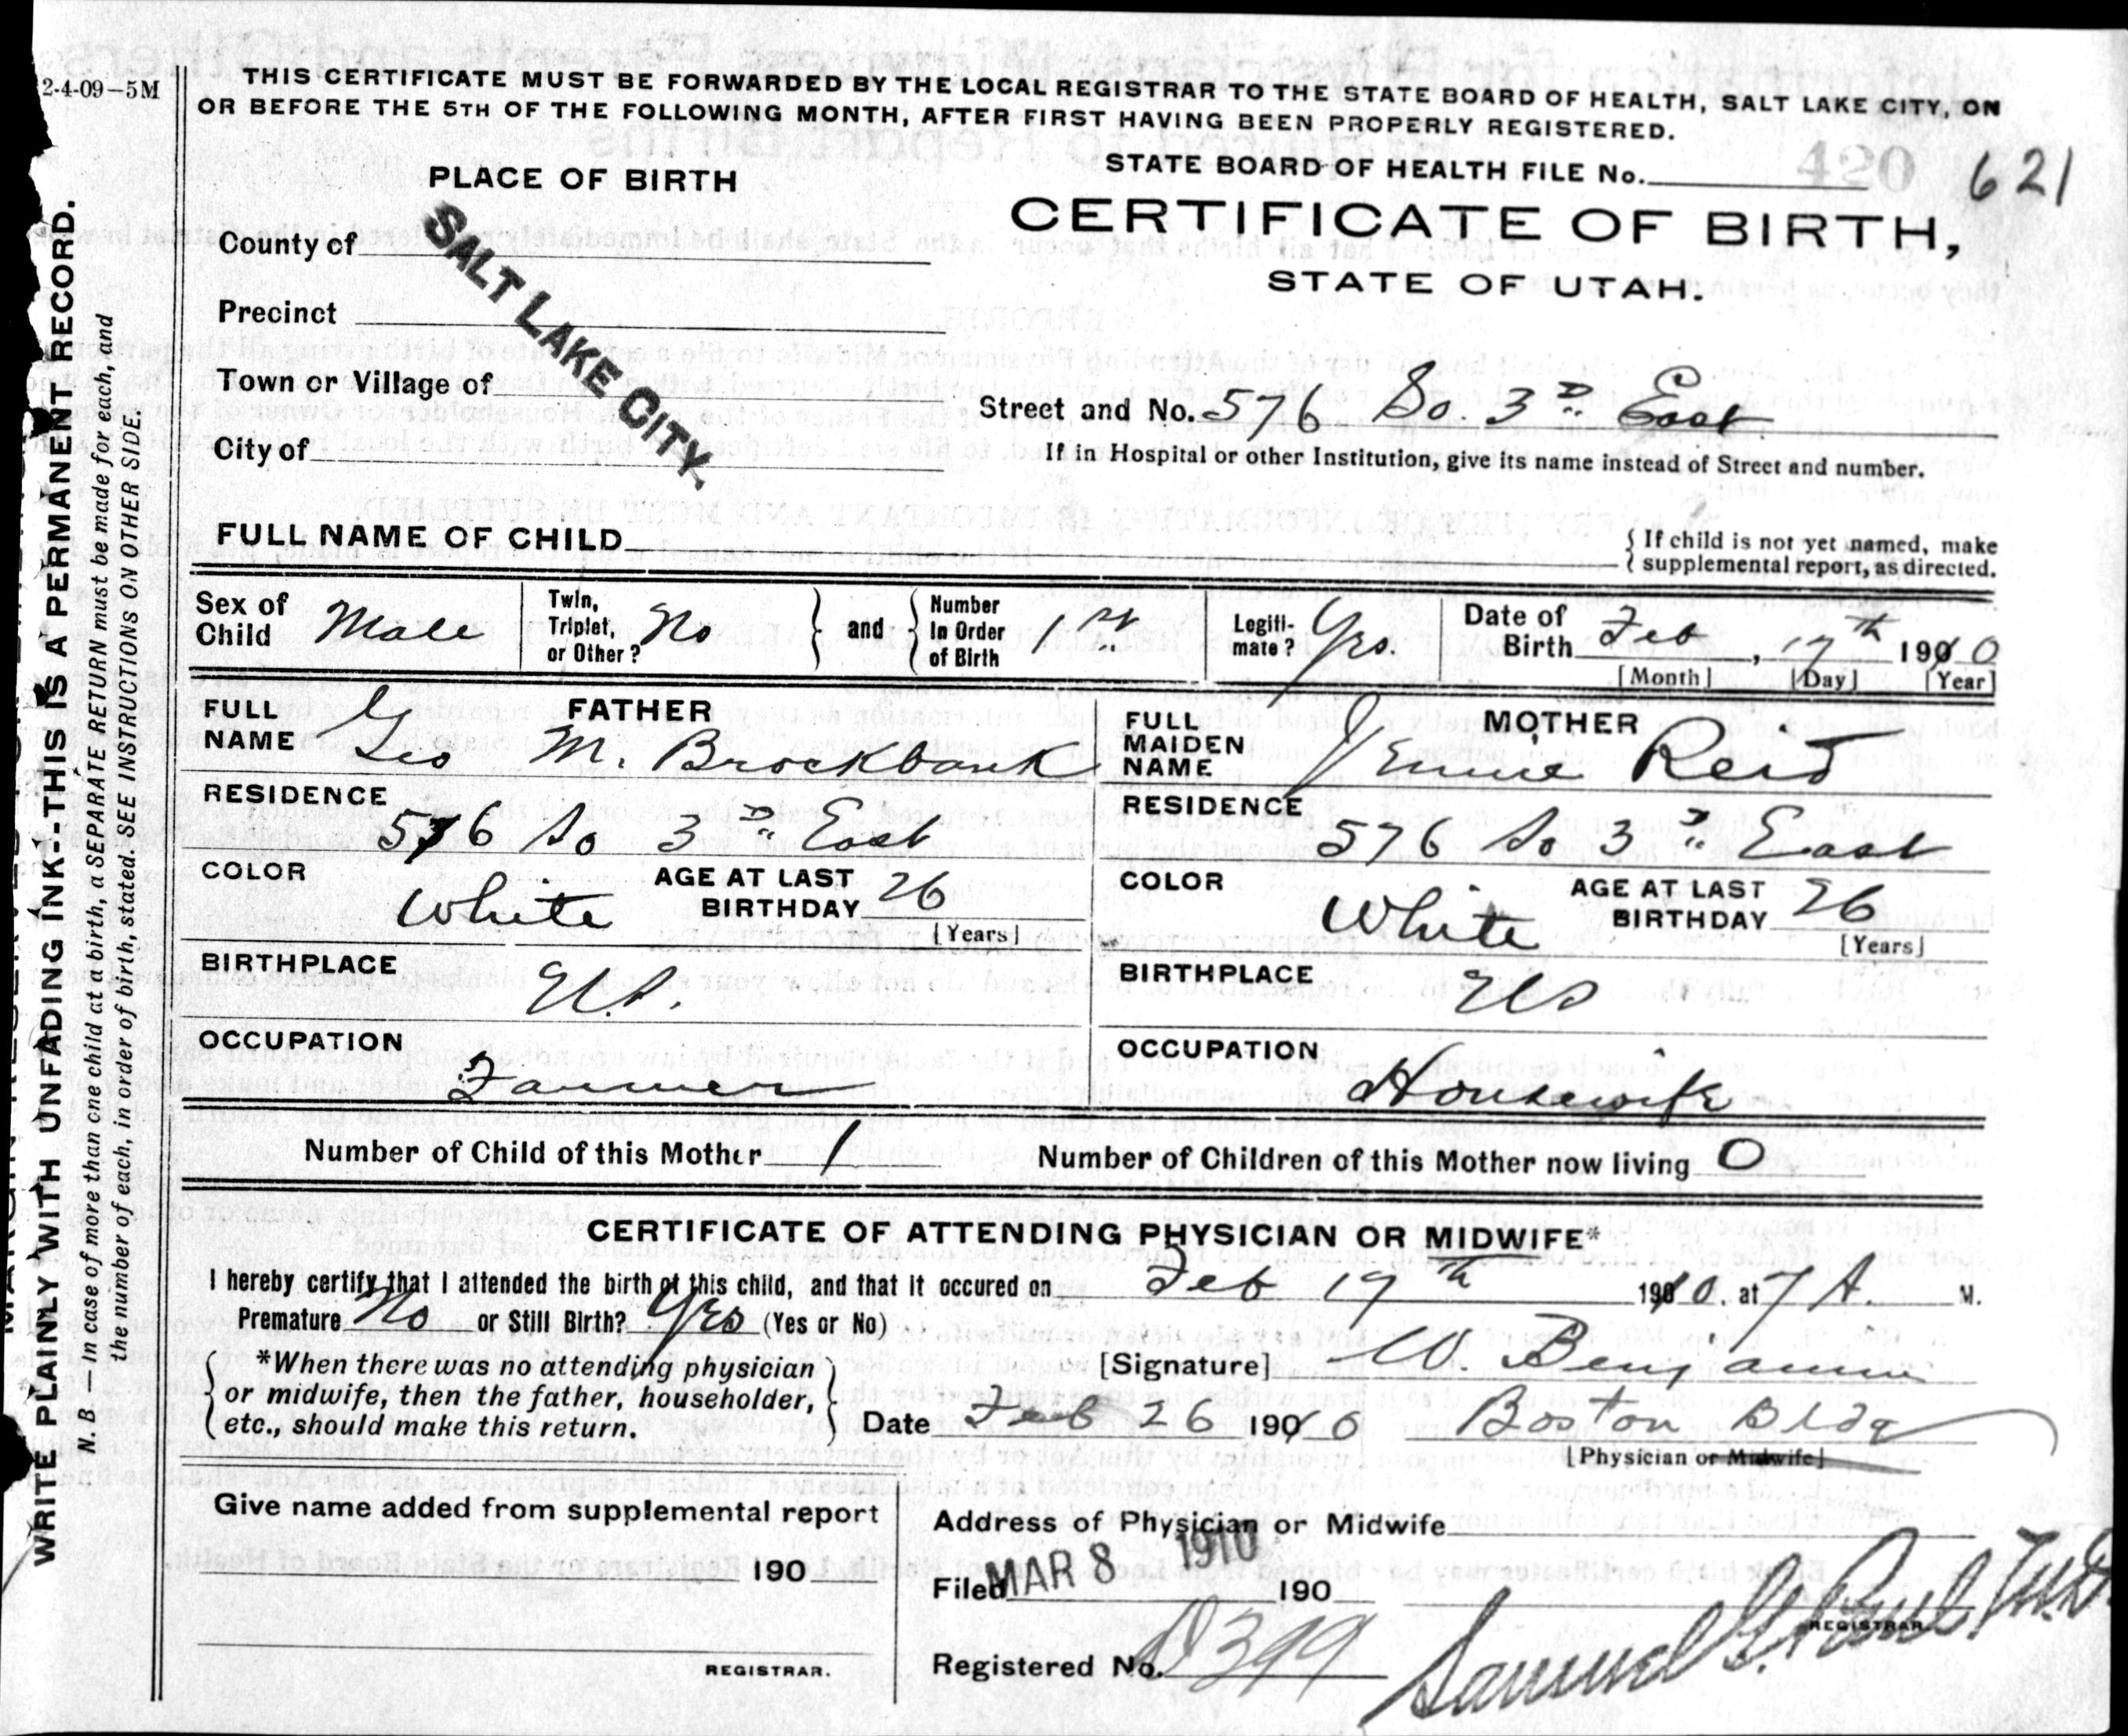 2-4-09-5M
THIS CERTIFICATE MUST BE FORWARDED BY THE LOCAL REGISTRAR TO THE STATE BOARD OF HEALTH, SALT LAKE CITY, ON
OR BEFORE THE 5TH OF THE FOLLOWING MONTH, AFTER FIRST HAVING BEEN PROPERLY REGISTERED.
STATE BOARD OF HEALTH FILE No. 420 621
PLACE OF BIRTH
CERTIFICATE OF BIRTH,
STATE OF UTAH.
County of
SALT LAKE CITY.
Precinct
Town or Village of
Street and No. 576 So. 3D East
City of
If in Hospital or other Institution, give its name instead of Street and number.
FULL NAME OF CHILD
{ If child is not yet named, make
supplemental report, as directed.
Sex of Child Male
Twin, Triplet, or Other? No
and
Number In Order of Birth 1st
Legiti-mate? Yes.
Date of Birth Feb, 17th 1910
[Month] [Day] [Year]
FATHER
FULL NAME Geo M. Brockbank
RESIDENCE
576 So 3D East
COLOR White
AGE AT LAST BIRTHDAY 26
[Years]
BIRTHPLACE
U.S.
OCCUPATION
Farmer
MOTHER
FULL MAIDEN NAME Jennie Reid
RESIDENCE
576 So 3D East
COLOR White
AGE AT LAST BIRTHDAY 26
[Years]
BIRTHPLACE
US
OCCUPATION
Housewife
Number of Child of this Mother 1 Number of Children of this Mother now living 0
CERTIFICATE OF ATTENDING PHYSICIAN OR MIDWIFE*
I hereby certify that I attended the birth of this child, and that it occured on Feb 17th 1910. at 7 A. M.
Premature No or Still Birth? Yes (Yes or No)
*When there was no attending physician
or midwife, then the father, householder,
etc., should make this return.
[Signature] W. Benjamin
Date Feb 26 1910 Boston Bldg
[Physician or Midwife]
Give name added from supplemental report
190
REGISTRAR.
Address of Physician or Midwife
Filed MAR 8 1910 190
REGISTRAR.
Registered No. 399
Samuel G. Paul M.D.
WRITE PLAINLY WITH UNFADING INK--THIS IS A PERMANENT RECORD.
N. B.—In case of more than one child at a birth, a SEPARATE RETURN must be made for each, and
the number of each, in order of birth, stated. SEE INSTRUCTIONS ON OTHER SIDE.